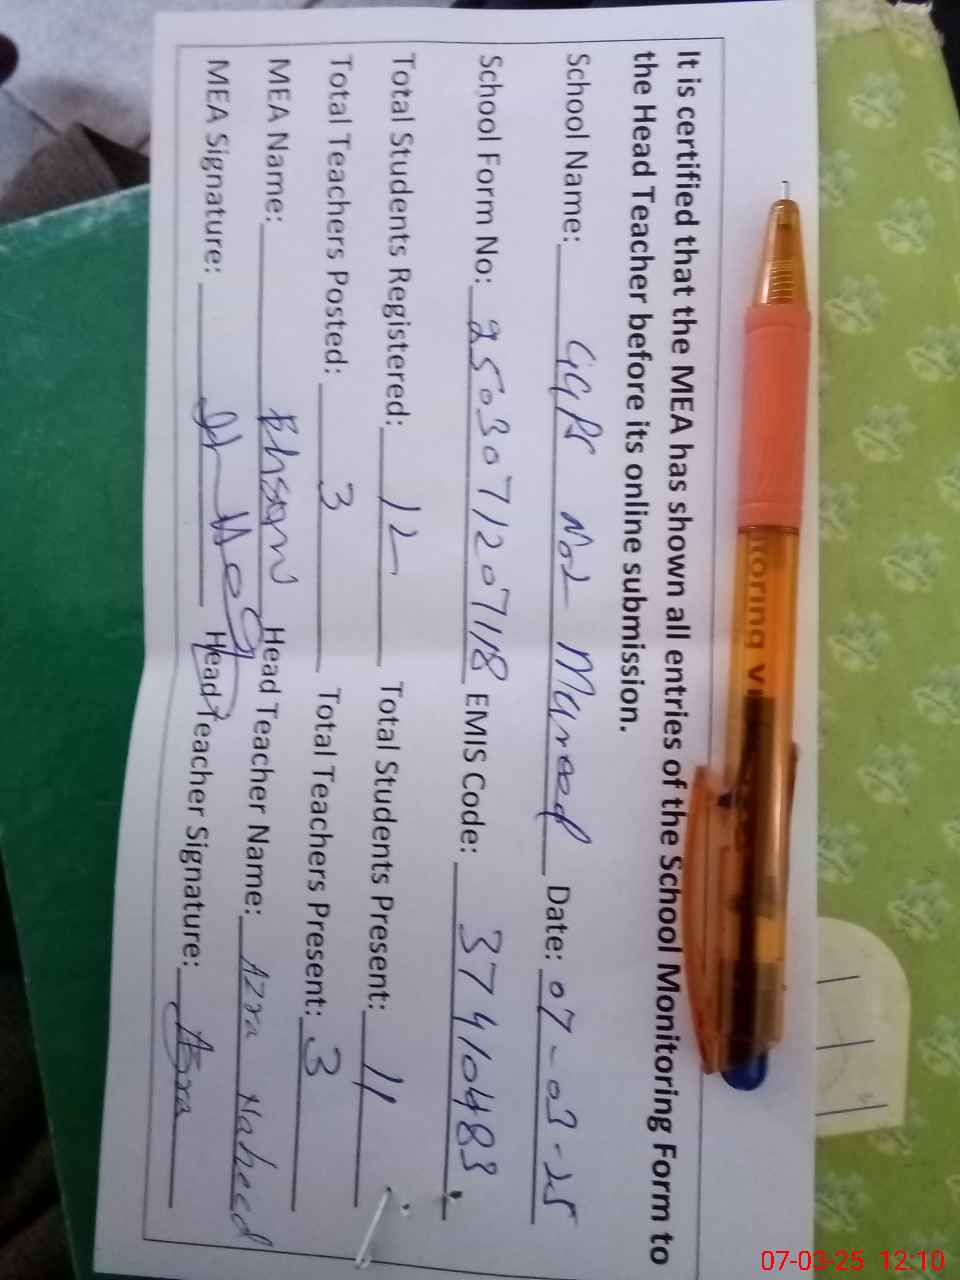 It is certified that the MEA has shown all entries of the School Monitoring Form to
the Head Teacher before its online submission.
School Name: GGPS No2 Mureed Date: 07-03-25
School Form No: 2503071207118 EMIS Code: 37410483
Total Students Registered: 12 Total Students Present: 11
Total Teachers Posted: 3 Total Teachers Present: 3
MEA Name: Ehsan Head Teacher Name: Azra Naheed
MEA Signature: Head Teacher Signature: Azra
07-03-25 12:10